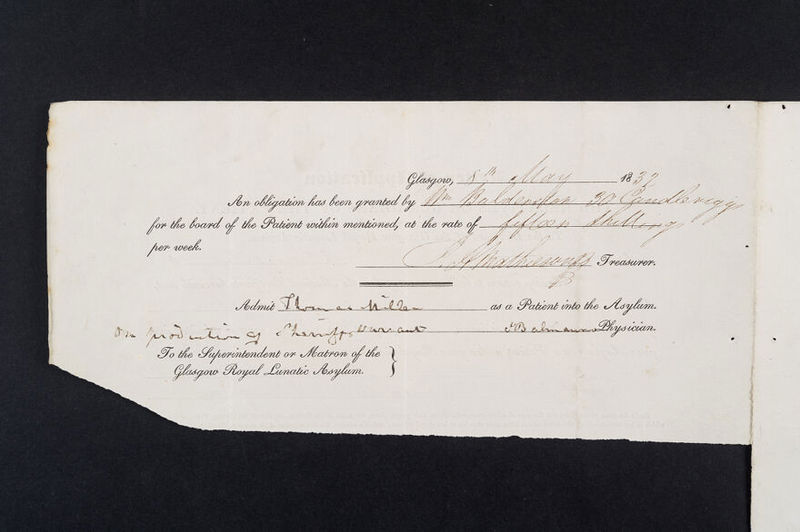 Glasgow, 8th May 1832
An obligation has been granted by Wm Balderston 30 Candlerigg
for the board of the Patient within mentioned, at the rate of fifteen Shilling
per week.
Mathieson Treasurer.
Admit Thomas Miller as a Patient into the Asylum.
On production of Sheriffs Warrant Balmanno Physician.
To the Superintendent or Matron of the
Glasgow Royal Lunatic Asylum.